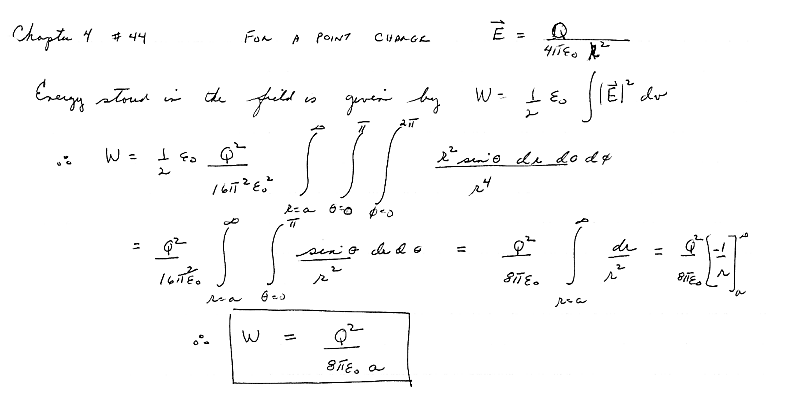 Chapter 4 # 44 FOR A POINT CHARGE E⃗ = Q / 4πε₀ r²
Energy stored in the field is given by W = 1/2 ε₀ ∫ |E⃗|² dv
∴ W = 1/2 ε₀ Q² / 16π²ε₀² ∫_{r=a}^{∞} ∫_{θ=0}^{π} ∫_{φ=0}^{2π} r² sinθ dr dθ dφ / r⁴
= Q² / 16π²ε₀ ∫_{r=a}^{∞} ∫_{θ=0}^{π} sinθ dr dθ / r² = Q² / 8πε₀ ∫_{r=a}^{∞} dr / r² = Q² / 8πε₀ [-1/r]_a^∞
∴ W = Q² / 8πε₀ a